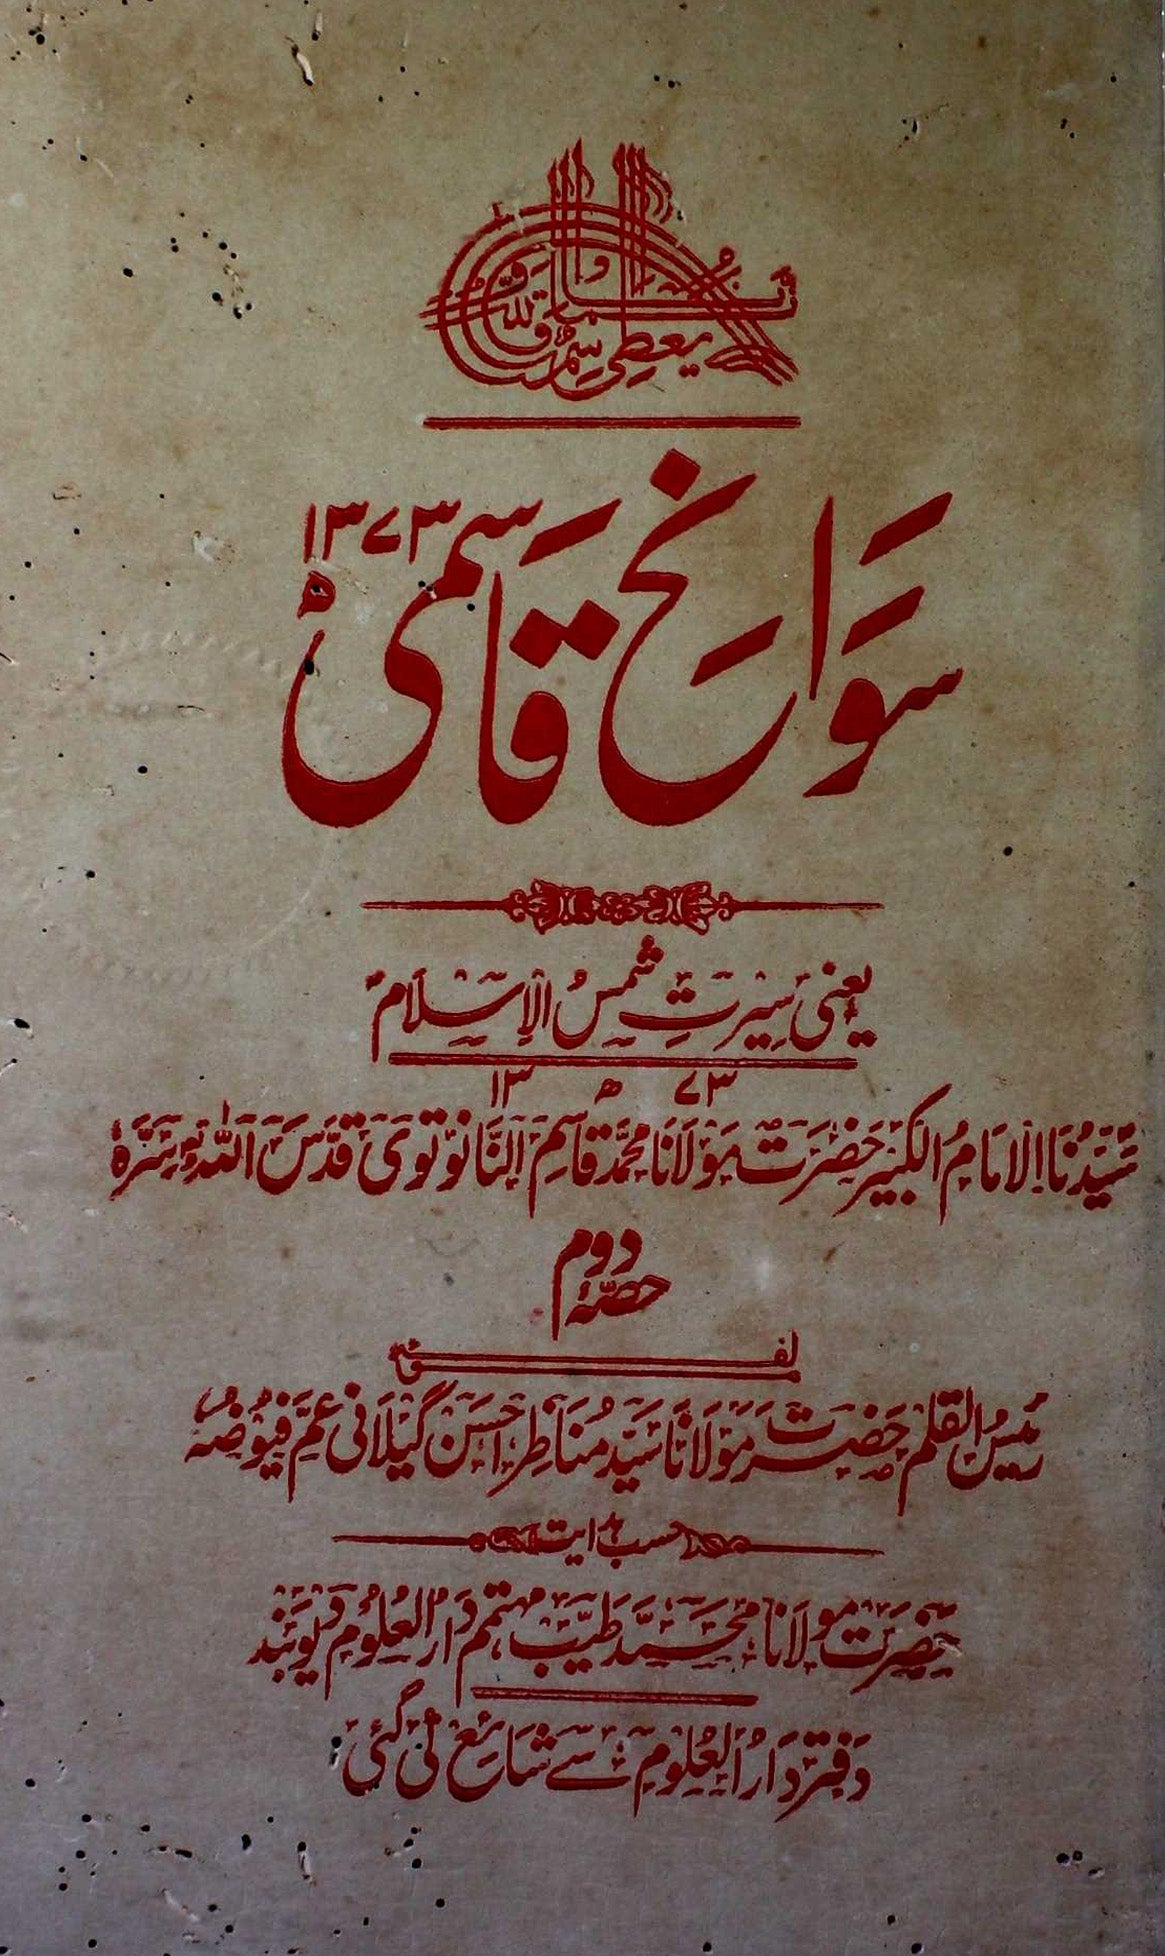 انما انا قاسم واللہ یعطی
سوانح قاسمی
۱۳۷۳ھ
یعنی سیرتِ شمسُ الاسلام
۱۳ھ۷۳
سَیّدُنَا الامَامُ الکبیر حَضرَت مَولَانَا محمّد قاسم اَلنَّانوتوی قَدَّسَ اَللّٰہُ سِرَّہٗ
حصّۂ دوم
رئیسُ القلم حَضرَت مَولَانَا سَیّد مُنَاظِر اَحسَن گیلانی عَمَّ فیُوضُہٗ
حسب ہدایت
حَضرَت مولَانا محمَّد طَیّب مہتمم دَارُالعُلُوم دیوبَند
دَفتر دَارُالعُلُوم سے شَائع کی گئی